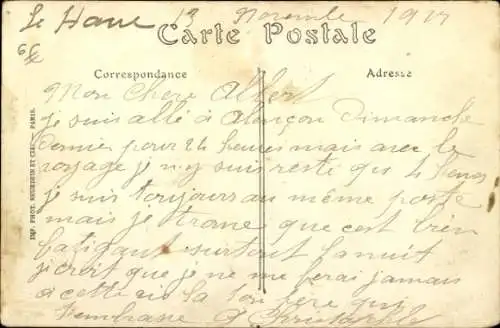 Le Havre 13 Novembre 1917
Carte Postale
Correspondance
Adresse
Mon Chere Albert
je suis allé à Alençon Dimanche
Dernier pour 24 heures mais avec le
voyage je n'y suis resté que 4 heures
je suis toujours au même poste
mais je trouve que c'est bien
fatigant surtout la nuit
je crois que je ne me ferai jamais
a cette vie la ton frère qui
t'embrasse
IMP. PHOT. NEURDEIN ET CIE. — PARIS.